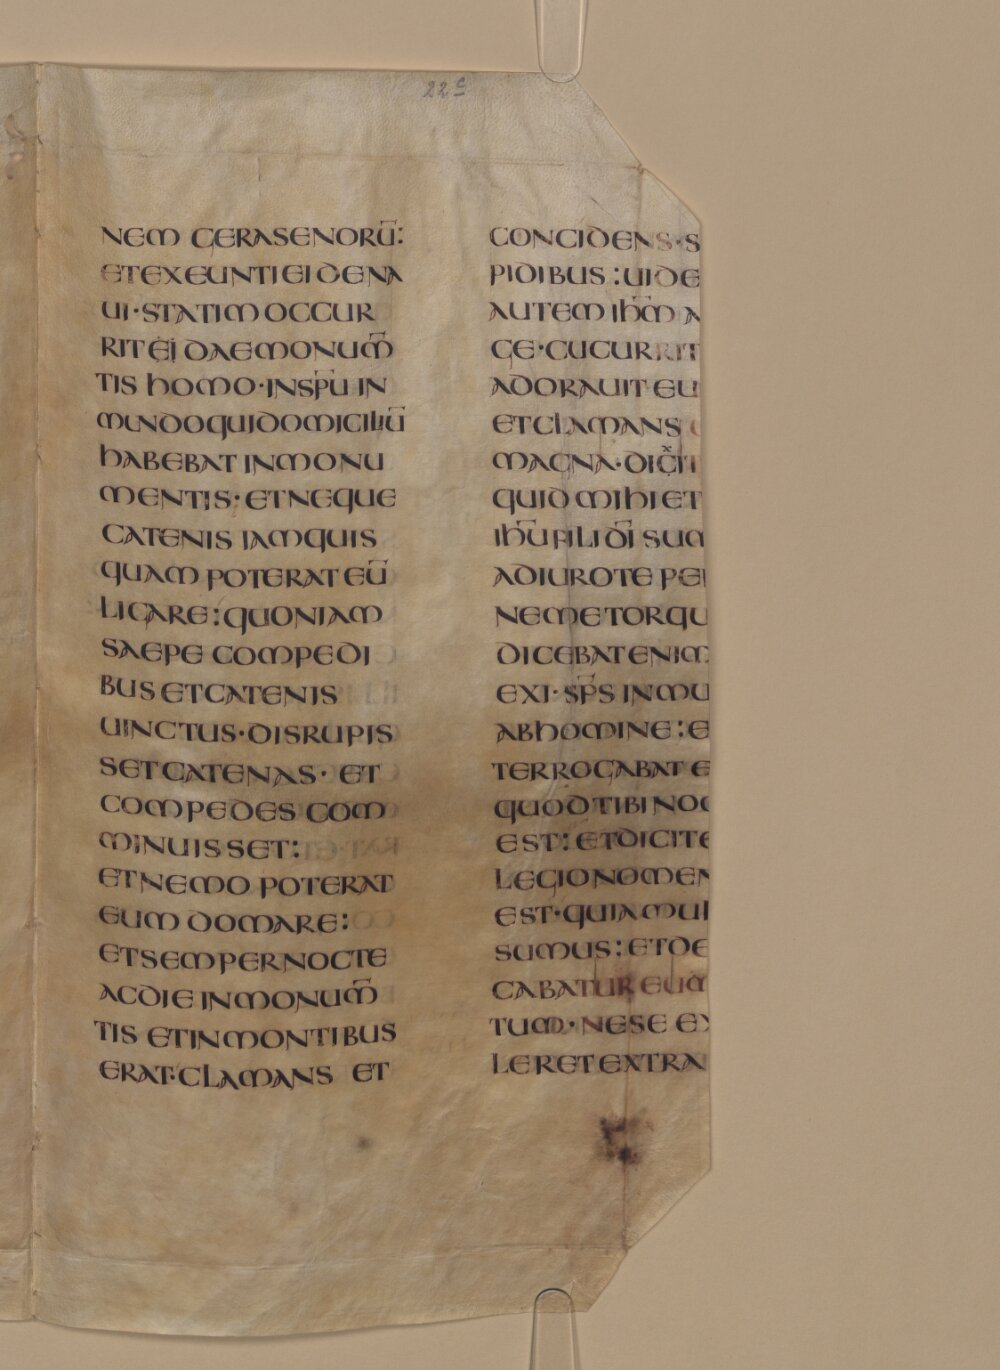 22c
NEM GERASENORŪ:
ETEXEUNTIEIDENA
UI·STATIMOCCUR
RIT EI DAEMONUM̄
TIS HOMO·INSP̄U IN
MUNDOQUIDOMICILIŪ
HABEBAT INMONU
MENTIS·ETNEQUE
CATENIS IAMQUIS
QUAM POTERAT EŪ
LIGARE:QUONIAM
SAEPE COMPEDI
BUS ETCATENIS
UINCTUS·DISRUPIS
SETCATENAS· ET
COMPEDES COM
MINUISSET:
ETNEMO POTERAT
EUM DOMARE:
ETSEMPERNOCTE
ACDIE INMONUM̄
TIS ETINMONTIBUS
ERAT·CLAMANS ET
CONCIDENS·S
PIDIBUS:UIDE
AUTEM IHM̄ A
GE·CUCURRIT
ADORAUIT EU
ETCLAMANS
MAGNA·DICIT
QUID MIHI ET
IHŪ FILI DĪ SUM
ADIUROTE PE
NEMETORQU
DICEBATENIM
EXI·SP̄S INMU
ABHOMINE:E
TERROGABAT E
QUOD TIBI NO
EST:ETDICITE
LEGIONOMEN
EST·QUIAMUL
SUMUS:ETDE
CABATUR EUM
TUM·NESE EX
LERETEXTRA